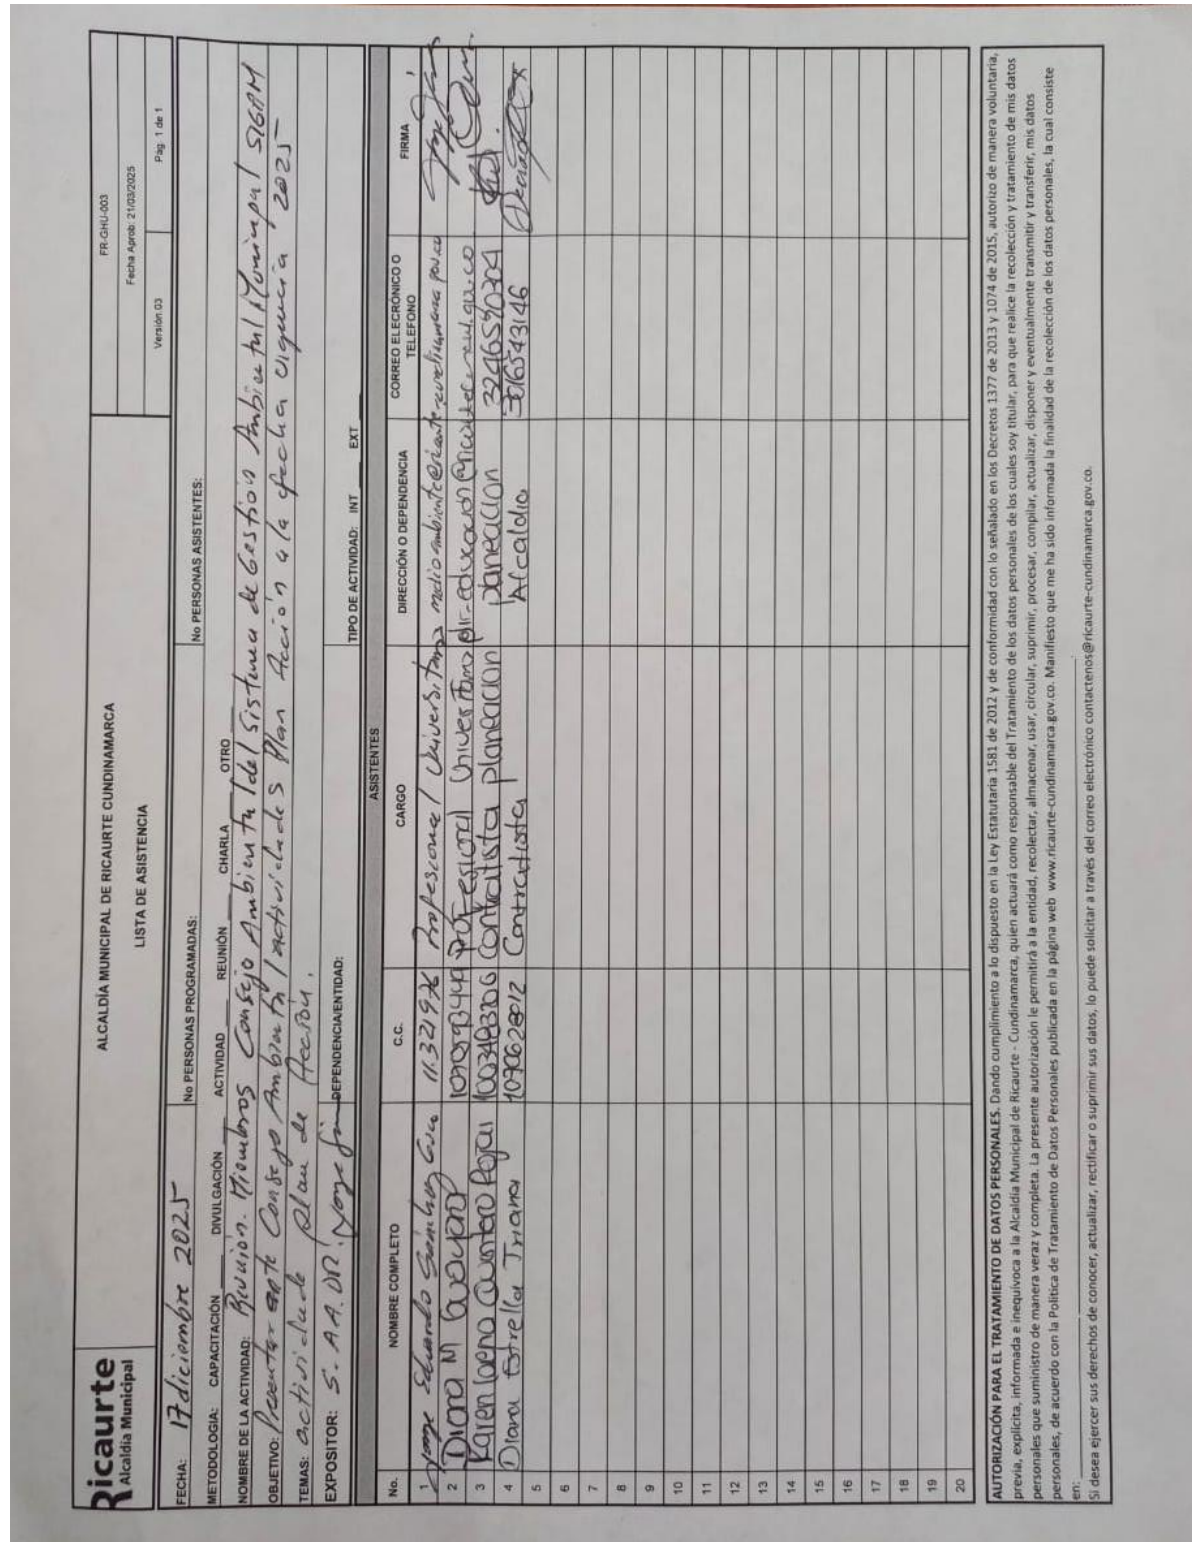 Ricaurte
Alcaldía Municipal
ALCALDÍA MUNICIPAL DE RICAURTE CUNDINAMARCA
LISTA DE ASISTENCIA
FR-GHU-003
Fecha Aprob: 21/03/2025
Versión 03 Pág. 1 de 1
FECHA: 17 diciembre 2025 No PERSONAS PROGRAMADAS: No PERSONAS ASISTENTES:
METODOLOGIA: CAPACITACIÓN DIVULGACIÓN ACTIVIDAD REUNIÓN CHARLA OTRO
NOMBRE DE LA ACTIVIDAD: Reunión. Miembros Consejo Ambiental del Sistema de Gestión Ambiental Municipal SIGAM
OBJETIVO: Presentar ante Consejo Ambiental actividades Plan Acción a la fecha vigencia 2025
TEMAS: actividade plan de Acción.
EXPOSITOR: S. A A. DR. Jorge DEPENDENCIA/ENTIDAD: TIPO DE ACTIVIDAD: INT EXT
ASISTENTES
No. NOMBRE COMPLETO C.C. CARGO DIRECCIÓN O DEPENDENCIA CORREO ELECRÓNICO O TELEFONO FIRMA
1 Jorge Eduardo Sánchez 11.321976 Profesional Universitario
2 Diana M Profesional Universitario
3 Karen Contratista planeacion planeacion 3246590304
4 Diana Estrella Triana 1070628012 Contratista Alcaldia 3016543146
5
6
7
8
9
10
11
12
13
14
15
16
17
18
19
20
AUTORIZACIÓN PARA EL TRATAMIENTO DE DATOS PERSONALES. Dando cumplimiento a lo dispuesto en la Ley Estatutaria 1581 de 2012 y de conformidad con lo señalado en los Decretos 1377 de 2013 y 1074 de 2015, autorizo de manera voluntaria,
previa, explícita, informada e inequívoca a la Alcaldía Municipal de Ricaurte - Cundinamarca, quien actuará como responsable del Tratamiento de los datos personales de los cuales soy titular, para que realice la recolección y tratamiento de mis datos
personales que suministro de manera veraz y completa. La presente autorización le permitirá a la entidad, recolectar, almacenar, usar, circular, suprimir, procesar, compilar, actualizar, disponer y eventualmente transmitir y transferir, mis datos
personales, de acuerdo con la Política de Tratamiento de Datos Personales publicada en la página web www.ricaurte-cundinamarca.gov.co. Manifiesto que me ha sido informada la finalidad de la recolección de los datos personales, la cual consiste
en:
Si desea ejercer sus derechos de conocer, actualizar, rectificar o suprimir sus datos, lo puede solicitar a través del correo electrónico contactenos@ricaurte-cundinamarca.gov.co.